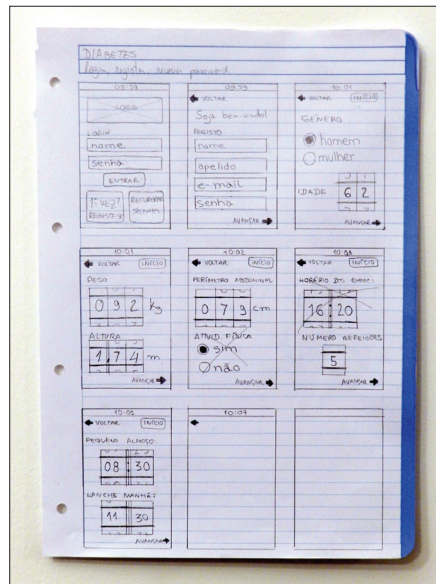 DIABETES
login, registo, recover password
09:59
LOGO
LOGIN
nome
senha
ENTRAR
1ª VEZ?
REGISTE-SE
RECUPERAR
SENHA
09:59
VOLTAR
Seja bem-vindo!
REGISTO
nome
apelido
e-mail
senha
AVANÇAR
10:01
VOLTAR
INÍCIO
GÉNERO
homem
mulher
IDADE
6 2
AVANÇAR
10:01
VOLTAR
INÍCIO
PESO
0 9 2 kg
ALTURA
1, 7 4 m
AVANÇAR
10:02
VOLTAR
INÍCIO
PERÍMETRO ABDOMINAL
0 7 9 cm
ATIVID. FÍSICA
sim
não
AVANÇAR
VOLTAR
INÍCIO
16:20
NÚMERO REFEIÇÕES
5
AVANÇAR
VOLTAR
INÍCIO
PEQUENO ALMOÇO:
08:30
LANCHE MANHÃ:
11 30
AVANÇAR